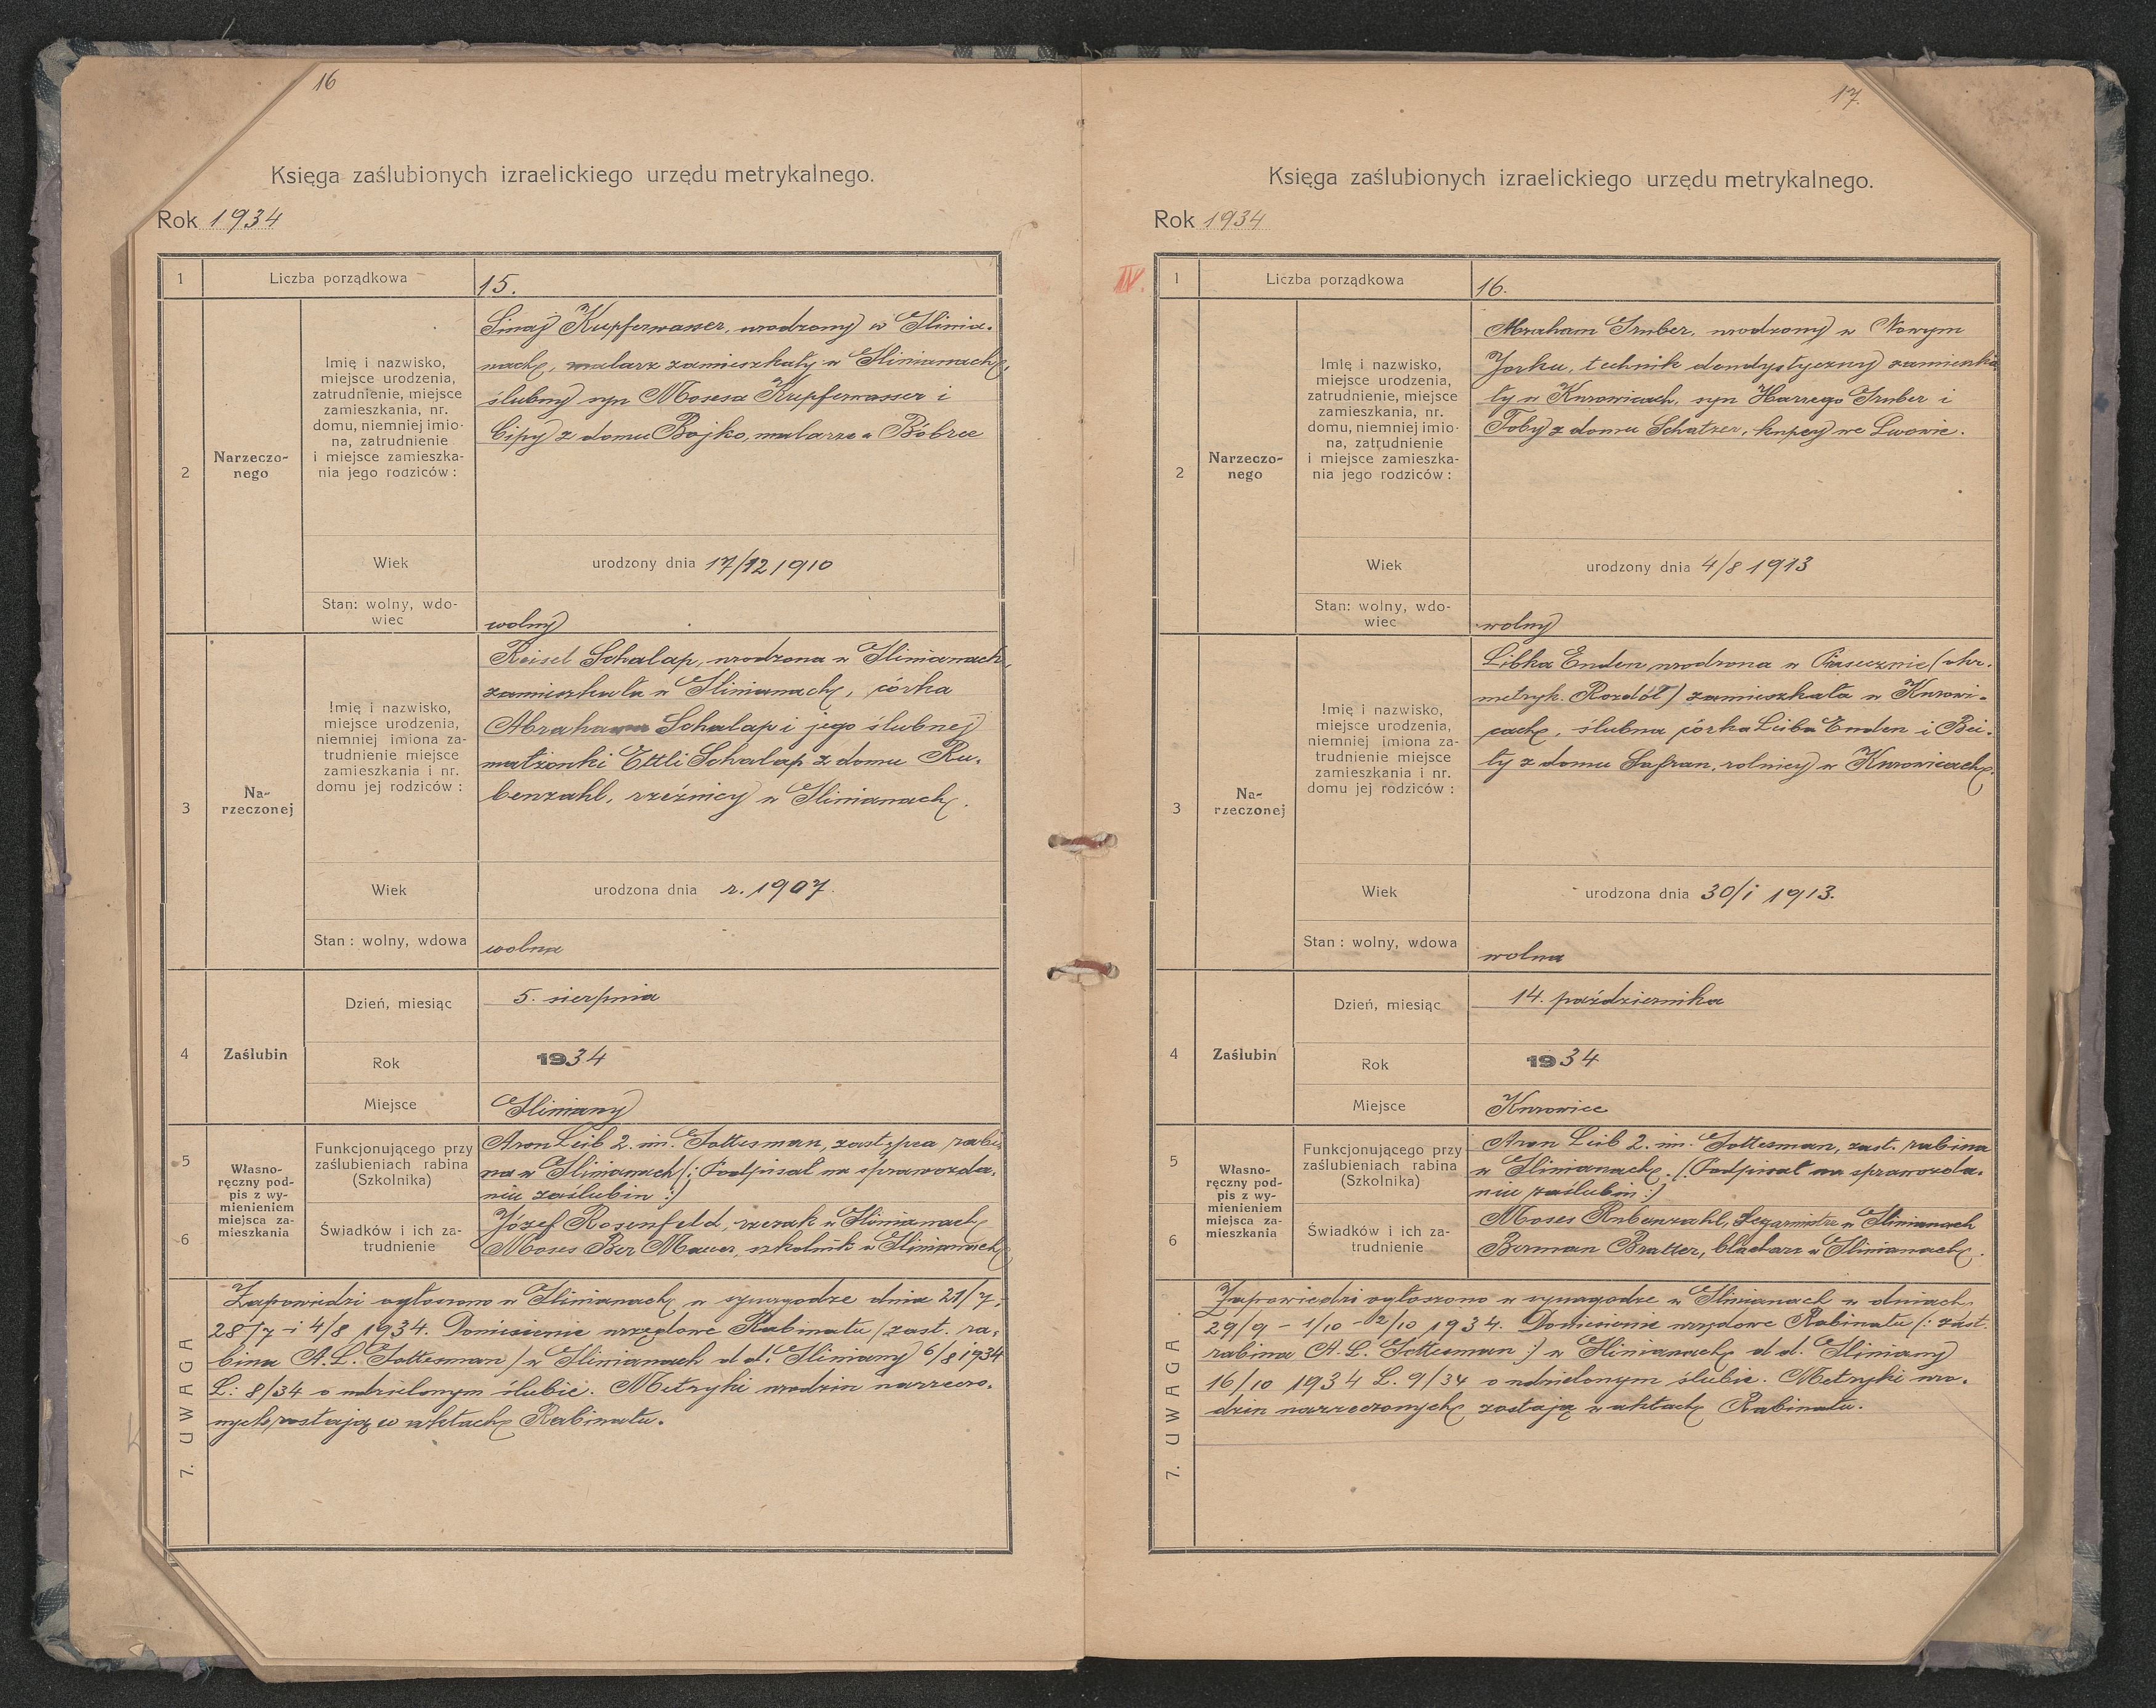 16
Księga zaślubionych izraelickiego urzędu metrykalnego.
Rok 1934
1 Liczba porządkowa 15.
2 Narzeczo-
nego
Imię i nazwisko,
miejsce urodzenia,
zatrudnienie, miejsce
zamieszkania, nr.
domu, niemniej imio-
na, zatrudnienie
i miejsce zamieszka-
nia jego rodziców:
Sinaj Kupferwasser, urodzony w Glinia-
nach, malarz zamieszkały w Glinianach,
ślubny syn Mosesa Kupferwasser i
Cipy z domu Bojko, malarze w Bóbrce
Wiek urodzony dnia 17/12 1910
Stan: wolny, wdo-
wiec
wolny
3 Na-
rzeczonej
Imię i nazwisko,
miejsce urodzenia,
niemniej imiona za-
trudnienie miejsce
zamieszkania i nr.
domu jej rodziców:
Reisel Schalap, urodzona w Glinianach,
zamieszkała w Glinianach, córka
Abrahama Schalap i jego ślubnej
małżonki Ettli Schalap z domu Ru-
benzahl, rzeźnicy w Glinianach.
Wiek urodzona dnia r. 1907.
Stan: wolny, wdowa wolna
4 Zaślubin
Dzień, miesiąc 5. sierpnia
Rok 1934
Miejsce Gliniany
Własno-
ręczny pod-
pis z wy-
mienieniem
miejsca za-
mieszkania
5 Funkcjonującego przy
zaślubieniach rabina
(Szkolnika)
Aron Leib 2. im. Gottesman, zastępca rabi-
na w Glinianach (: Podpisał na sprawozda-
niu zaślubin :)
6 Świadków i ich za-
trudnienie
Józef Rosenfeld, rzezak w Glinianach
Moses Ber Mauer, szkolnik w Glinianach
7. UWAGA
Zapowiedzi ogłoszono w Glinianach w synagodze dnia 21/7,
28/7 i 4/8 1934. Doniesienie urzędowe Rabinatu (zast. ra-
bina A. L. Gottesman) w Glinianach d d. Gliniany 6/8 1934
L: 8/34 o udzielonym ślubie. Metryki urodzin narzeczo-
nych zostają w aktach Rabinatu.
17.
Księga zaślubionych izraelickiego urzędu metrykalnego.
Rok 1934
IV.
1 Liczba porządkowa 16.
2 Narzeczo-
nego
Imię i nazwisko,
miejsce urodzenia,
zatrudnienie, miejsce
zamieszkania, nr.
domu, niemniej imio-
na, zatrudnienie
i miejsce zamieszka-
nia jego rodziców:
Abraham Gruber, urodzony w Nowym
Jorku, technik dendystyczny zamieszka
ły w Kurowicach, syn Harrego Gruber i
Toby z domu Schatzer, kupcy we Lwowie.
Wiek urodzony dnia 4/8 1913
Stan: wolny, wdo-
wiec
wolny
3 Na-
rzeczonej
Imię i nazwisko,
miejsce urodzenia,
niemniej imiona za-
trudnienie miejsce
zamieszkania i nr.
domu jej rodziców:
Libka Enden urodzona w Piasecznie (okr.
metryk. Rozdół) zamieszkała w Kurowi-
cach, ślubna córka Leiba Enden i Bei-
ły z domu Safran, rolnicy w Kurowicach.
Wiek urodzona dnia 30/I 1913.
Stan: wolny, wdowa wolna
4 Zaślubin
Dzień, miesiąc 14. października
Rok 1934
Miejsce Kurowice
Własno-
ręczny pod-
pis z wy-
mienieniem
miejsca za-
mieszkania
5 Funkcjonującego przy
zaślubieniach rabina
(Szkolnika)
Aron Leib 2. im. Gottesman, zast. rabina
w Glinianach. (: Podpisał na sprawozda-
niu zaślubin :)
6 Świadków i ich za-
trudnienie
Moses Rubenzahl, zegarmistrz w Glinianach
Berman Bratter, blacharz w Glinianach.
7. UWAGA
Zapowiedzi ogłoszono w synagodze w Glinianach w dniach
29/9 - 1/10 - 2/10 1934. Doniesienie urzędowe Rabinatu (: zast.
rabina A. L. Gottesman :) w Glinianach d d. Gliniany
16/10 1934 L. 9/34 o udzielonym ślubie. Metryki uro-
dzin narzeczonych zostają w aktach Rabinatu.